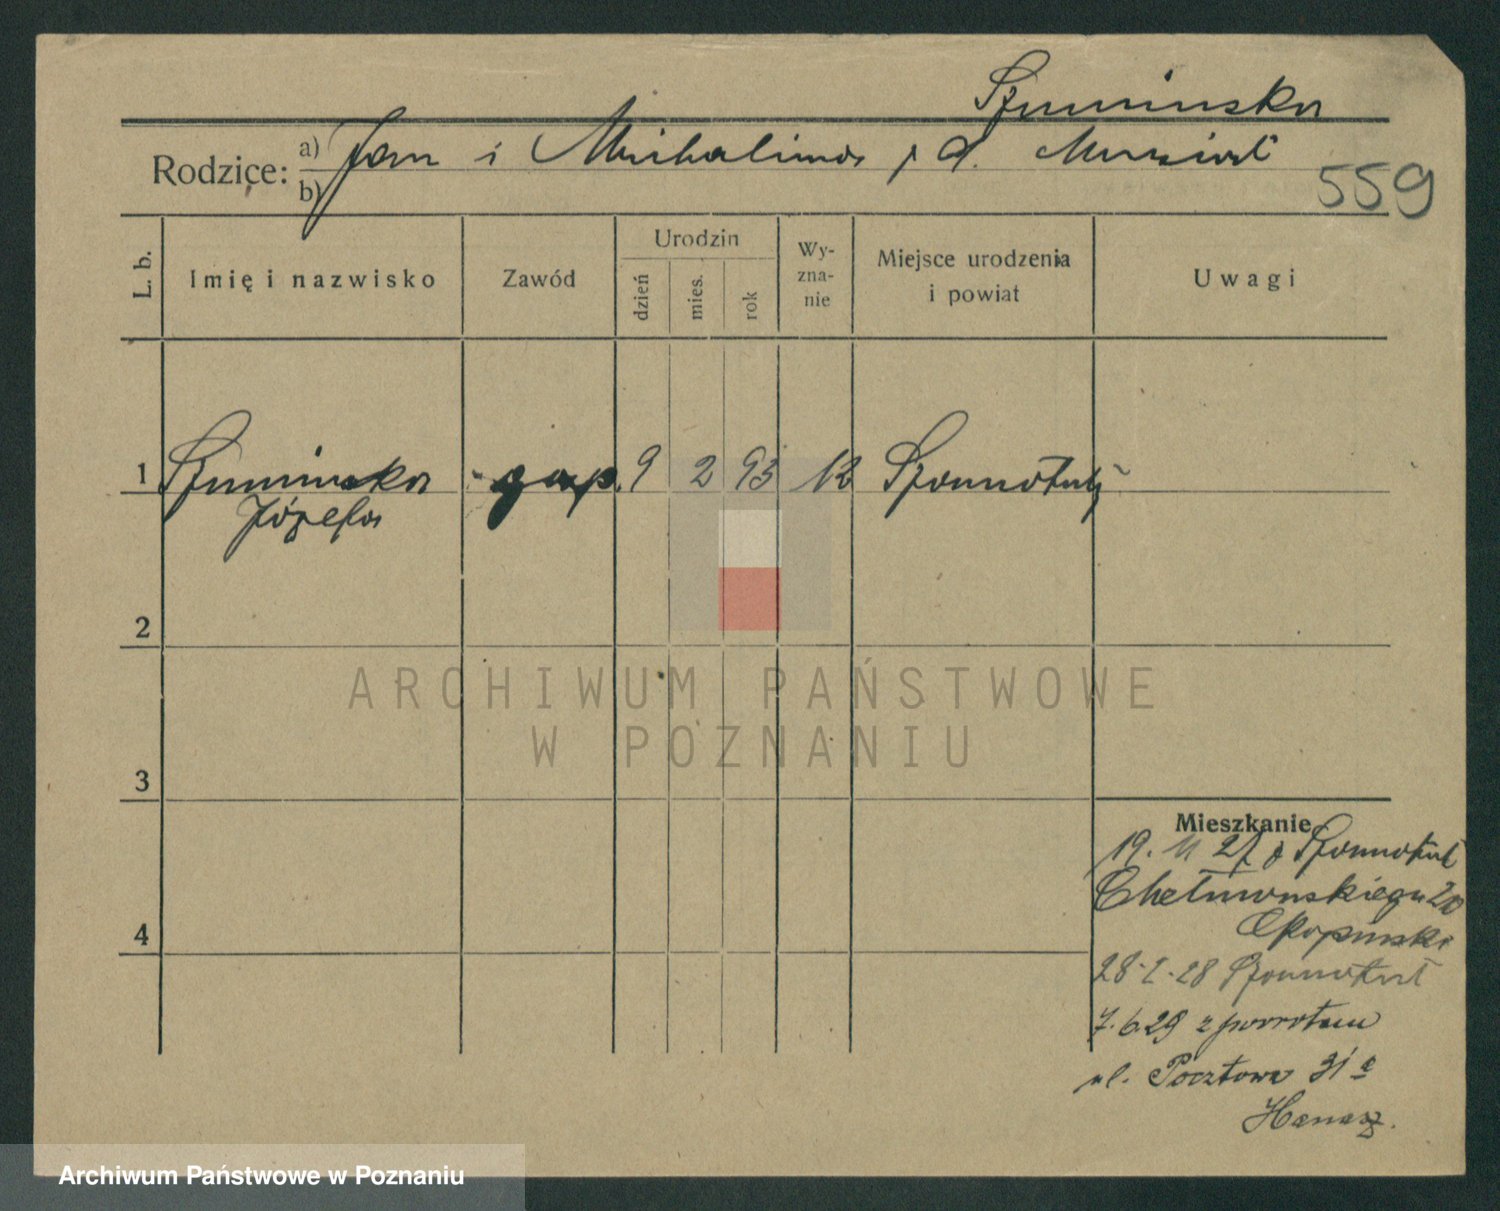 Szumińska
Rodzice: a) Jan i Michalina z d.
b)
559
L. b.
Imię i nazwisko
Zawód
Urodzin
dzień
mies.
rok
Wy-
zna-
nie
Miejsce urodzenia
i powiat
Uwagi
1 Szumińska gosp. 9 2 93 Szamotuły
Józefa
2
ARCHIWUM PAŃSTWOWE
W POZNANIU
3
Mieszkanie
19. 11 27 z Szamotuł
20
28-2-28 Szamotuł
4
7.6.29 z powrotem
ul. Pocztowa 31 a
Hanasz.
Archiwum Państwowe w Poznaniu